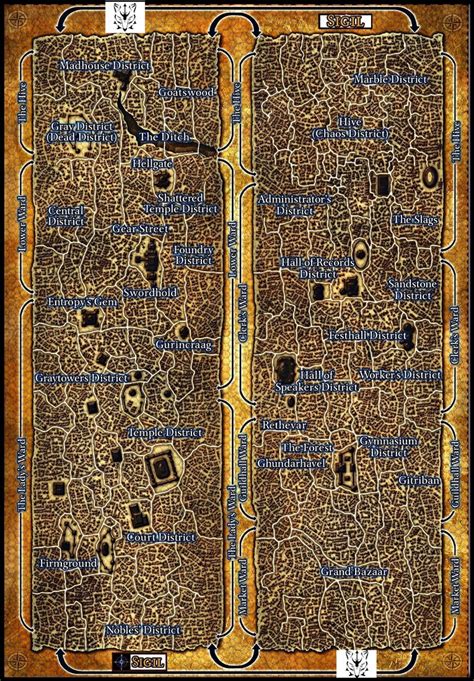 SIGIL
Madhouse District
Goatswood
Gray District
(Dead District)
The Ditch
Hellgate
Shattered
Temple District
Central
District
Gear Street
Foundry
District
Swordhold
Entropy's Gem
Gurincraag
Graytowers District
Temple District
Court District
Firmground
Nobles' District
The Hive
Lower Ward
The Lady's Ward
The Hive
Lower Ward
Clerk's Ward
The Lady's Ward
Guildhall Ward
Market Ward
Marble District
Hive
(Chaos District)
Administrator's
District
The Slags
Hall of Records
District
Sandstone
District
Festhall District
Hall of
Speakers District
Worker's District
Rethevar
The Forest
Ghundarhavel
Gymnasium
District
Gitriban
Grand Bazaar
The Hive
Clerk's Ward
Guildhall Ward
Market Ward
SIGIL